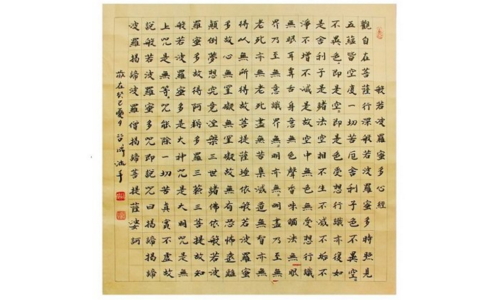 般若波羅蜜多心經
觀自在菩薩行深般若波羅蜜多時照見
五蘊皆空度一切苦厄舍利子色不異空
不異色即是空即是色受想行識亦復如
是舍利子是諸法空相不生不滅不垢不
淨不增不減是故空中無色無受想行識
無眼耳鼻舌身意無色聲香味觸法無眼
界乃至無意識界無無明亦無無明盡乃至無
老死亦無老死盡無苦集滅道無智亦無
得以無所得故菩提薩埵依般若波羅
蜜多故心無罣礙無罣礙故無有恐怖遠離
顛倒夢想究竟涅槃三世諸佛依般若波
羅蜜多故得阿耨多羅三藐三菩提故知
般若波羅蜜多是大神咒是大明咒是無
上咒是無等等咒能除一切苦真實不虛故
說般若波羅蜜多咒即說咒曰揭諦揭諦
波羅揭諦波羅僧揭諦菩提薩婆訶
歲在癸巳夏月